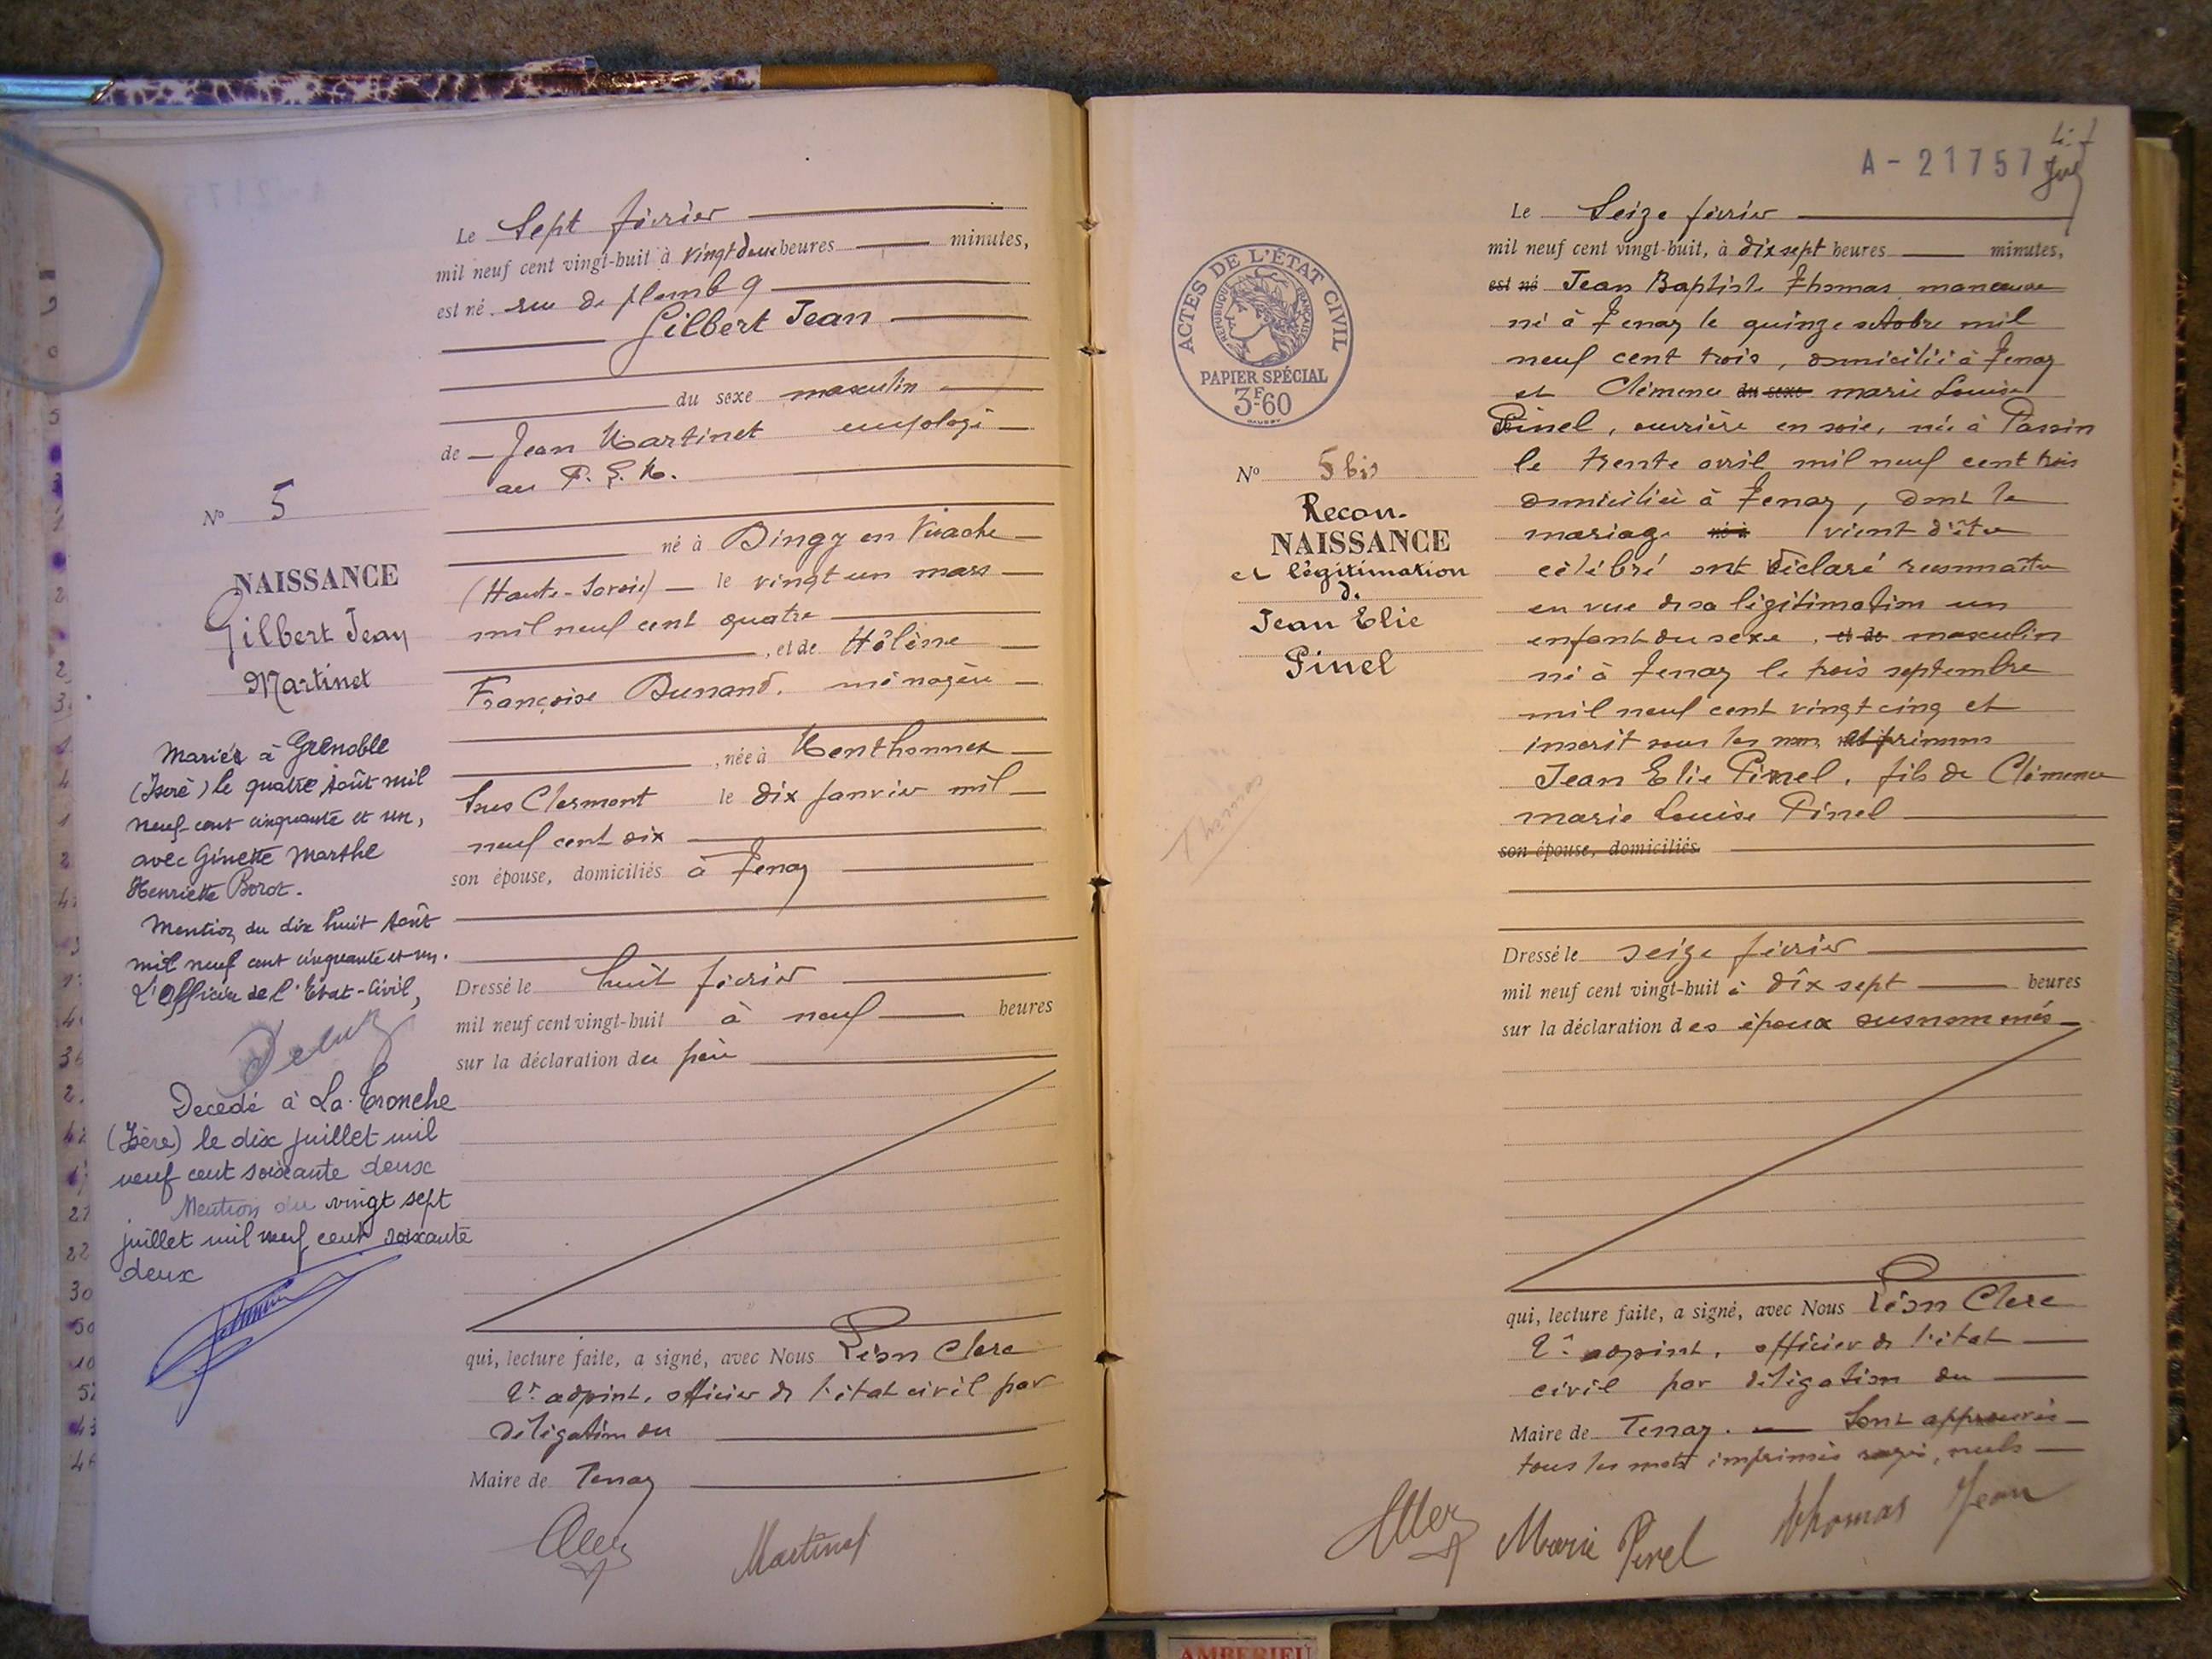 Le Sept février
mil neuf cent vingt-huit à vingt deux heures minutes,
est né rue de plomb 9
Gilbert Jean
du sexe masculin
de Jean Martinet employé
au P. L. M.
né à Dingy en Vuache
(Haute-Savoie) le vingt un mars
mil neuf cent quatre
, et de Hélène
Françoise Dunand. ménagère
, née à Menthonnex
Sous Clermont le dix janvier mil
neuf cent dix
son épouse, domiciliés à Tenay
Dressé le huit février
mil neuf cent vingt-huit à neuf heures
sur la déclaration du père
qui, lecture faite, a signé, avec Nous Léon Clerc
2e adjoint, officier de l'état civil par
délégation du
Maire de Tenay
Martinet
No 5
NAISSANCE
Gilbert Jean
Martinet
Mariés à Grenoble
(Isère) le quatre Août mil
neuf cent cinquante et un,
avec Ginette Marthe
Henriette Borot.
Mention du dix huit Août
mil neuf cent cinquante et un.
L'Officier de l'Etat-Civil,
Decedé à La Tronche
(Isère) le dix juillet mil
neuf cent soixante deux
Mention du vingt sept
juillet mil neuf cent soixante
deux
A-21757
ACTES DE L'ÉTAT CIVIL
RÉPUBLIQUE FRANÇAISE
PAPIER SPÉCIAL
3F60
No 5 bis
Recon-
NAISSANCE
et légitimation
de
Jean Elie
Pinel
Le Seize février
mil neuf cent vingt-huit, à dix sept heures minutes,
est né Jean Baptiste Thomas manœuvre
né à Tenay le quinze octobre mil
neuf cent trois, domicilié à Tenay
et Clémence du sexe marie Louise
Pinel, ouvrière en soie, née à Passin
le trente avril mil neuf cent trois
domiciliée à Tenay, dont le
mariage né à vient d'être
célébré ont déclaré reconnaître
en vue de sa légitimation un
enfant du sexe, et de masculin
né à Tenay le trois septembre
mil neuf cent vingt cinq et
inscrit sous les nom et prénoms
Jean Elie Pinel, fils de Clémence
marie Louise Pinel
son épouse, domiciliés
Dressé le seize février
mil neuf cent vingt-huit à dix sept heures
sur la déclaration des époux susnommés
qui, lecture faite, a signé, avec Nous Léon Clerc
2e adjoint, officier de l'état
civil par délégation du
Maire de Tenay. Sont approuvés
tous les mots imprimés rayés, nuls
Marie Pinel Thomas Jean
AMBERIEU